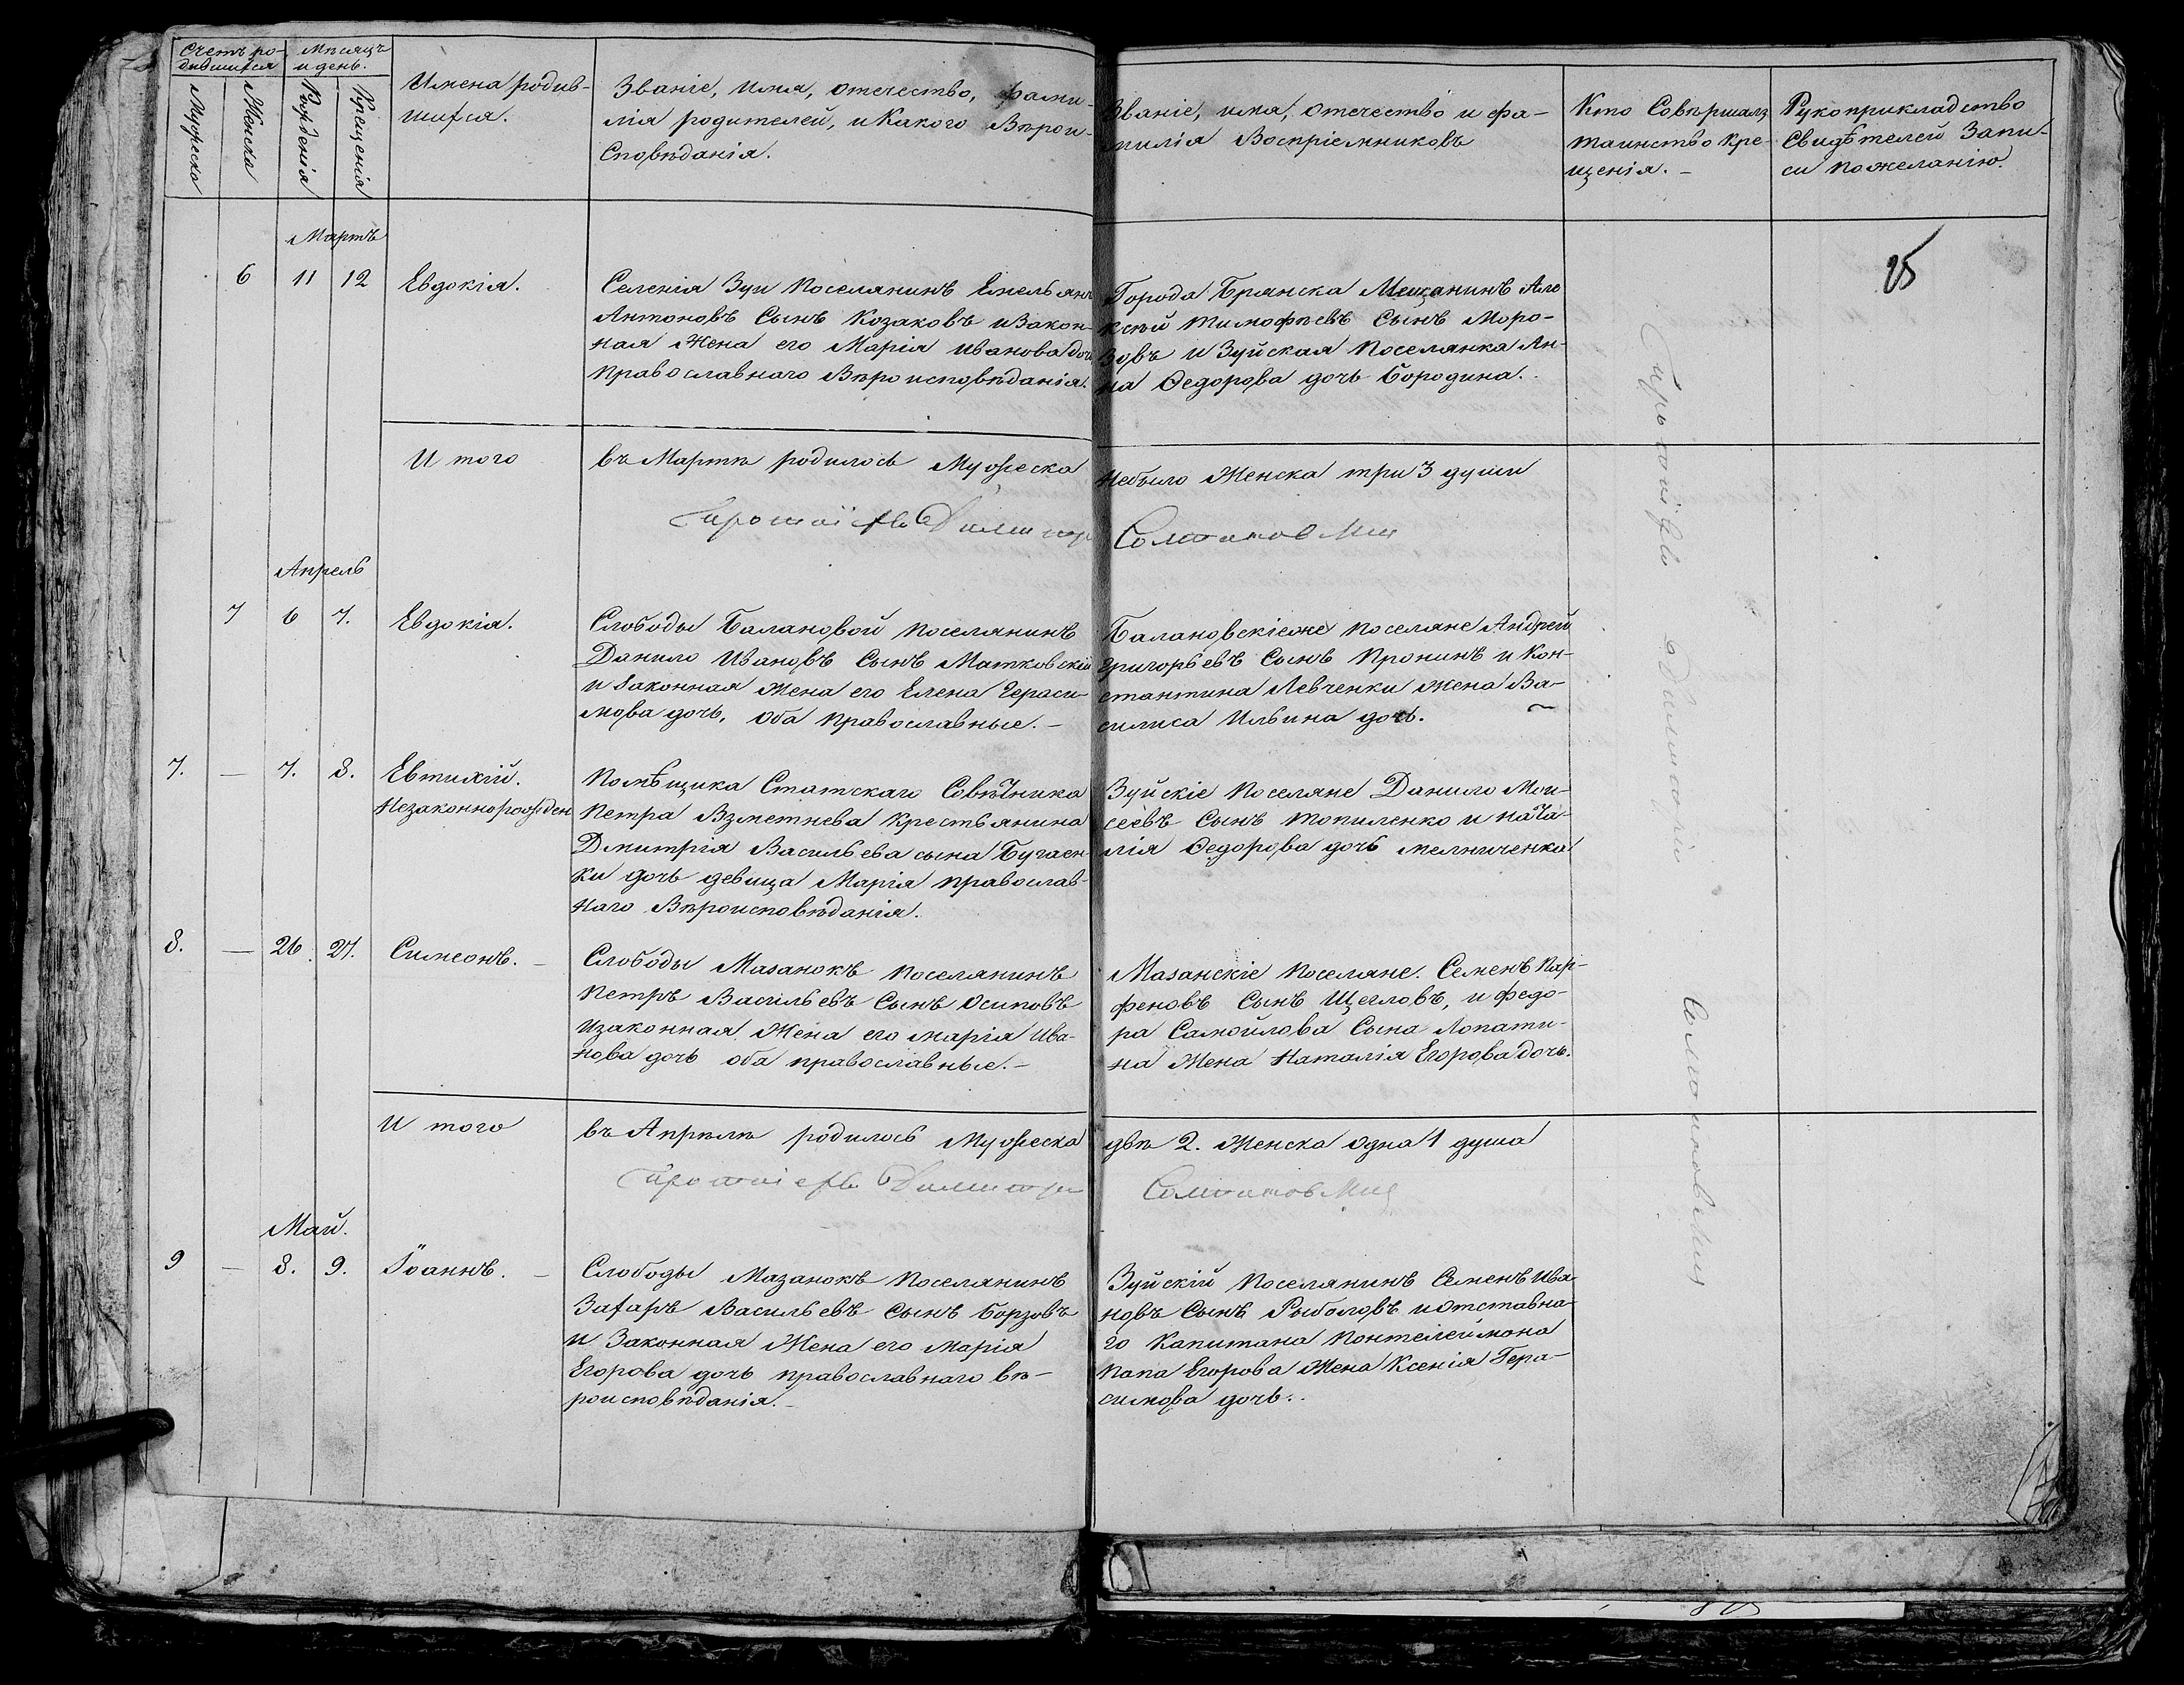 Счетъ родившихся
Мѣсяцъ и день.
Мужеска
Женска
Рожденія
Крещенія
Имена родив-
шихся.
Званіе, имя, отечество, фами-
лія родителей, и какого вѣрои-
сповѣданія.
Званіе, имя, отечество и фа-
милія воспріемниковъ
Кто Совершалъ
таинство Кре-
щенія. -
Рукоприкладство
Свидѣтелей Запи-
си по желанію.
25
Мартъ
6 11 12 Евдокія.
Селенія Зуи поселянинъ Емельянъ
Антоновъ Сынъ Козаковъ и Закон-
ная Жена его Марія Иванова дочь
православнаго вѣроисповѣданія.
Города Брянска Мещанинъ Але
ксѣй Тимофѣевъ Сынъ Моро-
зовъ и Зуйская поселянка Ан-
на Ѳедорова дочь Бородина.
Итого въ Мартѣ родилось Мужеска
небыло Женска три 3 души
Протоіерей Димитрі
Апрель
7 6 7. Евдокія.
Слободы Балановой поселянинъ
Данило Ивановъ Сынъ Матковскій
и законная жена его Елена Гераси-
мова дочь, оба православные. -
Балановскіеже поселяне Андрей
Григорьевъ Сынъ Пронинъ и Кон-
стантина Левченки жена Ва-
силиса Ильина дочь.
7. — 7. 8. Евтихій.
Незаконнорожден
Помѣщика Статскаго Совѣтника
Петра Взметнева крестьянина
Дмитрія Васильева сына Бугаен-
ки дочь девица Марія православ-
наго вѣроисповѣданія.
Зуйскіе поселяне Данило Мои-
сеевъ Сынъ Топиленко и Ната-
лія Ѳедорова дочь мелниченкова
8. — 26. 27. Симеонъ. -
Слободы Мазанокъ поселянинъ
Петръ Васильевъ Сынъ Осиповъ
и законная Жена его Марія Ива-
нова дочь оба православные. -
Мазанскіе поселяне. Семенъ Пар-
феновъ Сынъ Щегловъ, и федо-
ра Самойлова Сына Лопати-
на Жена Наталія Егорова дочь.
Итого въ Апрѣлѣ родилось Мужеска
двѣ 2. Женска одна 1 душа
Протоіерей Димитрі
Май.
9 — 8. 9. Іоаннъ. -
Слободы Мазанокъ поселянинъ
Захаръ Васильевъ Сынъ Борзовъ
и Законная Жена его Марія
Егорова дочь православнаго вѣ-
роисповѣданія. -
Зуйскій поселянинъ Семенъ Ива
новъ Сынъ Рыболовъ и отставна-
го Капитана Понтелеймона
Папа Егорова Жена Ксенія Гера-
симова дочь.
Протоіерей Димитрій